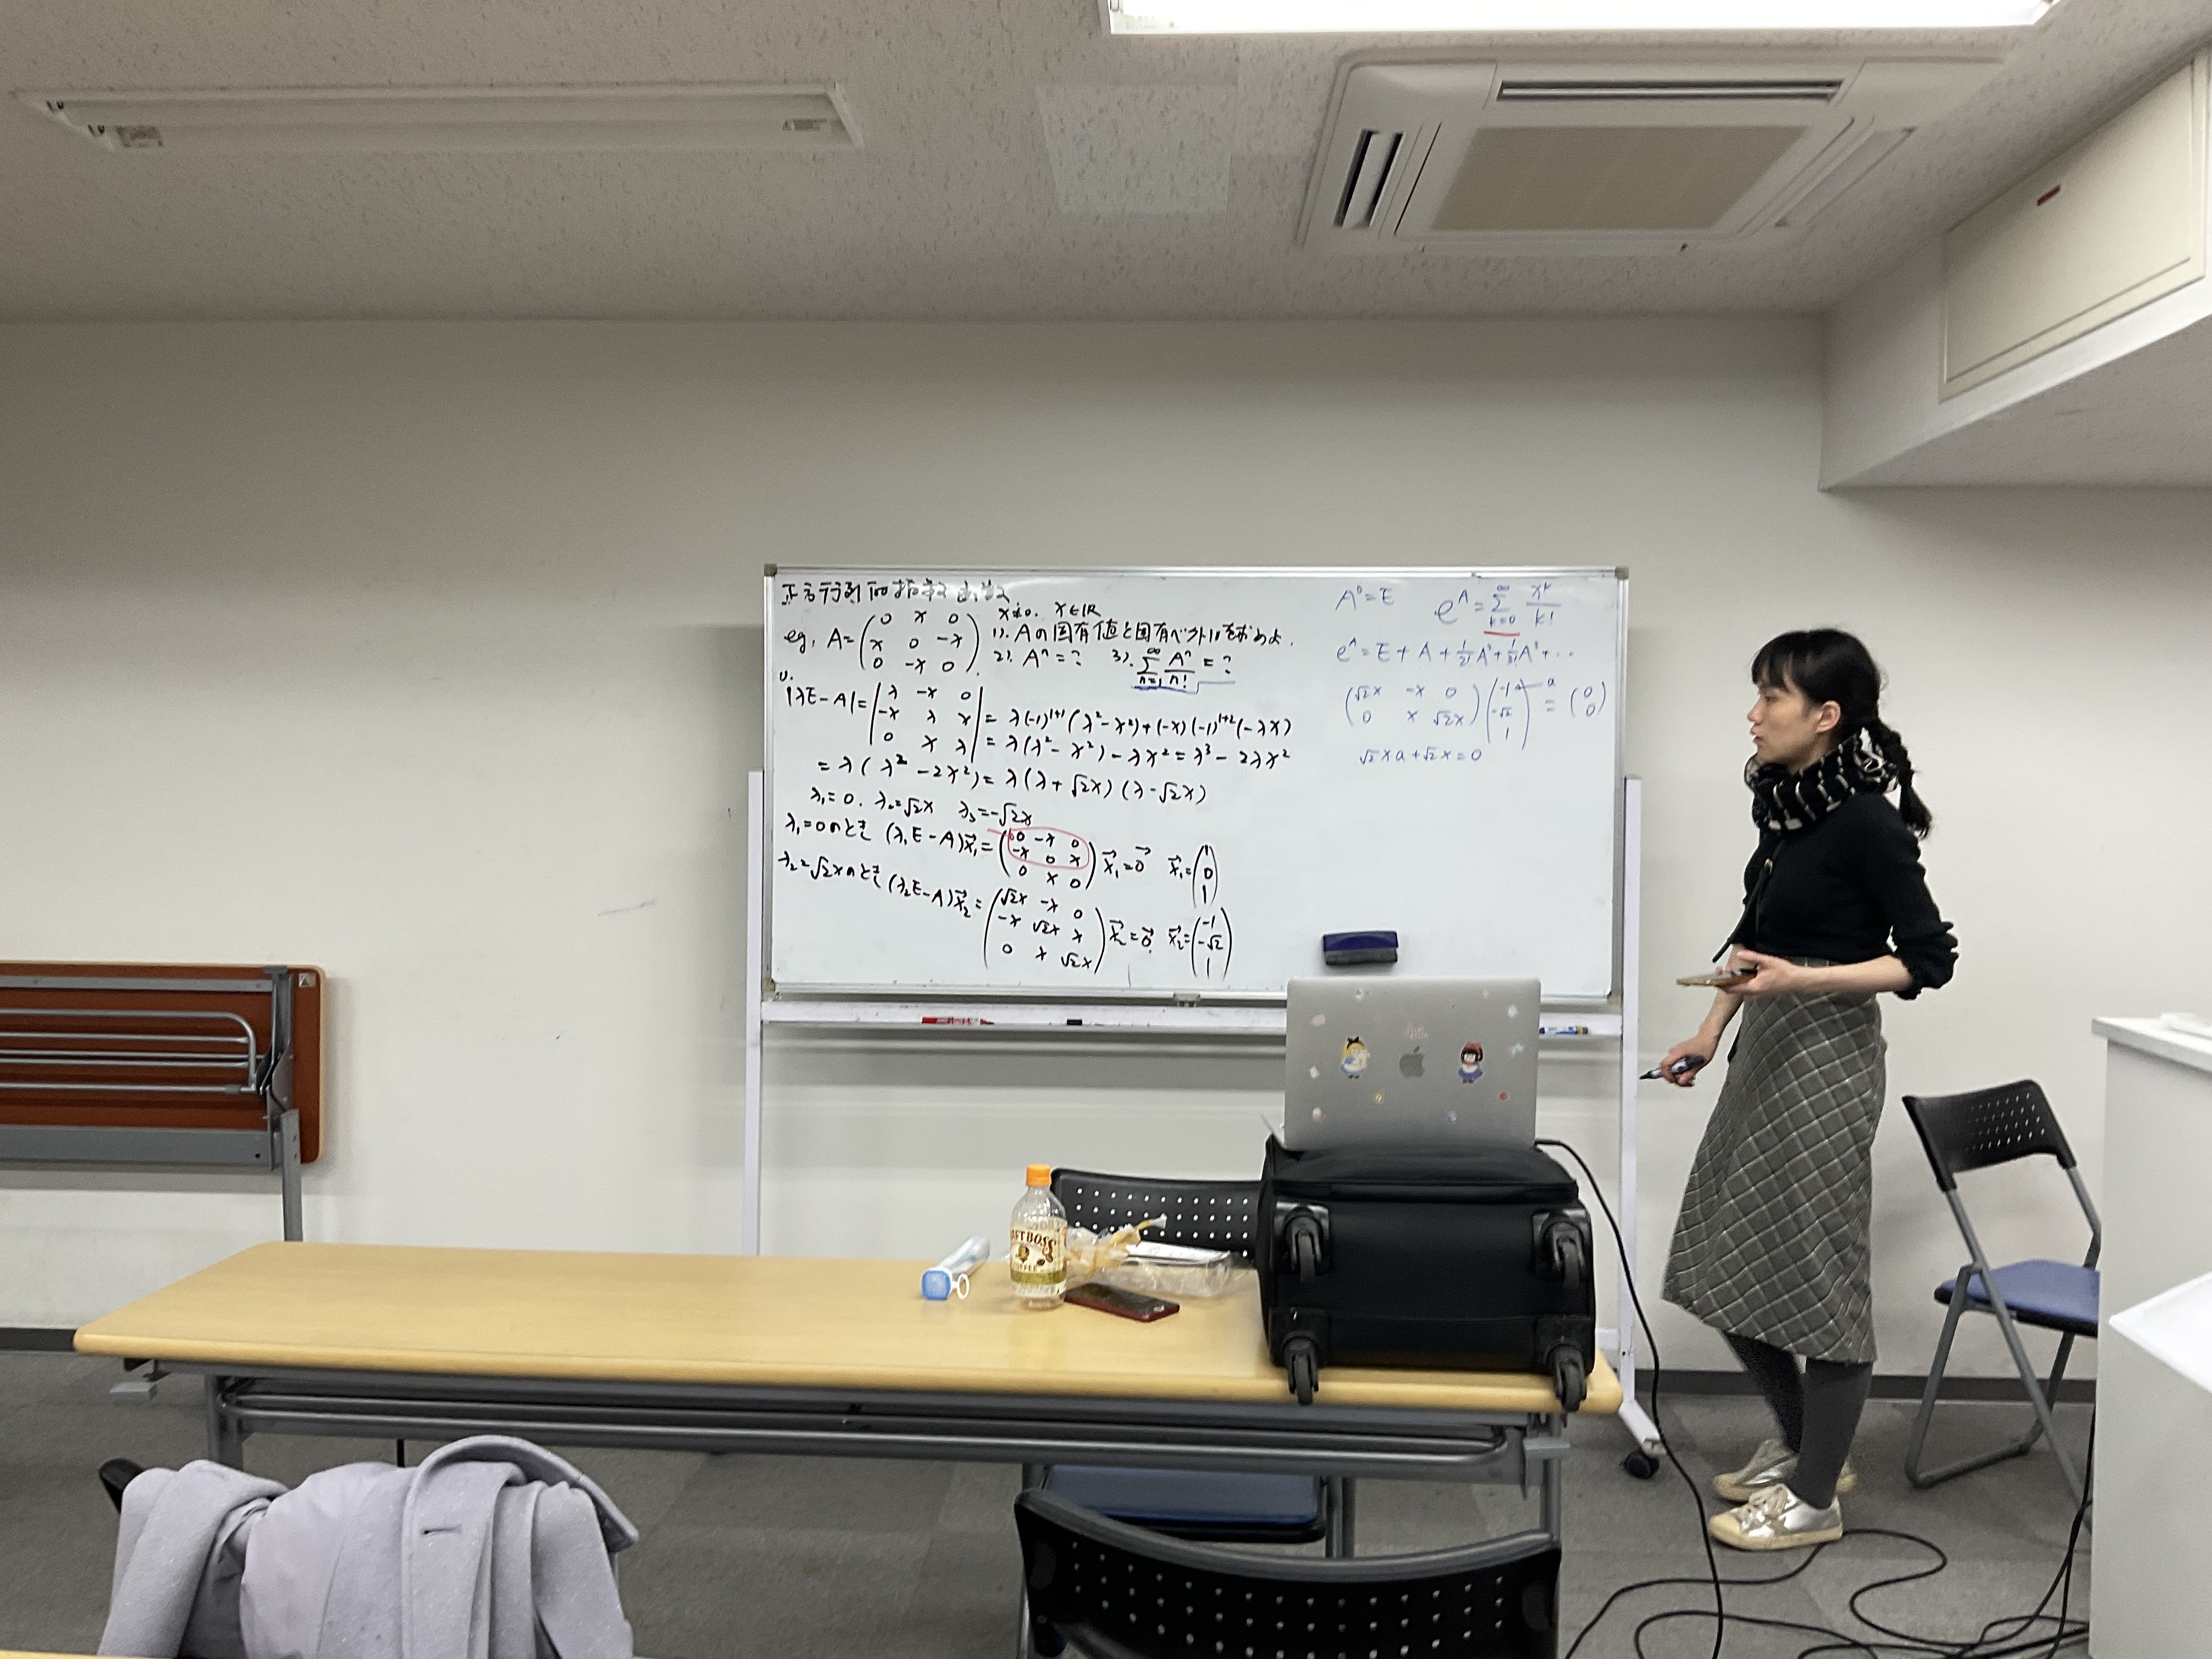 正方行列の指数函数
eg, A=(0 x 0 / x 0 -x / 0 -x 0). x≠0. x∈ℝ
1). Aの固有値と固有ベクトルを求めよ.
2). Aⁿ=? 3). ∑_{n=1}^{∞} Aⁿ/n! = ?
1).
|λE-A|=|λ -x 0 / -x λ x / 0 x λ| = λ(-1)^{1+1}(λ²-x²)+(-x)(-1)^{1+2}(-λx)
= λ(λ²-x²)-λx²=λ³-2λx²
=λ(λ²-2x²)=λ(λ+√2x)(λ-√2x)
λ₁=0. λ₂=√2x λ₃=-√2x
λ₁=0のとき (λ₁E-A)x⃗₁=(0 -x 0 / -x 0 x / 0 x 0)x⃗₁=0⃗ x⃗₁=(1 / 0 / 1)
λ₂=√2xのとき (λ₂E-A)x⃗₂=(√2x -x 0 / -x √2x x / 0 x √2x)x⃗₂=0⃗. x⃗₂=(-1 / -√2 / 1)
A⁰=E e^A=∑_{k=0}^{∞} x^k/k!
e^A=E+A+1/2!A²+1/3!A³+...
(√2x -x 0 / 0 x √2x)(-1 / -√2 / 1) a = (0 / 0)
√2xa+√2x=0
BOSS